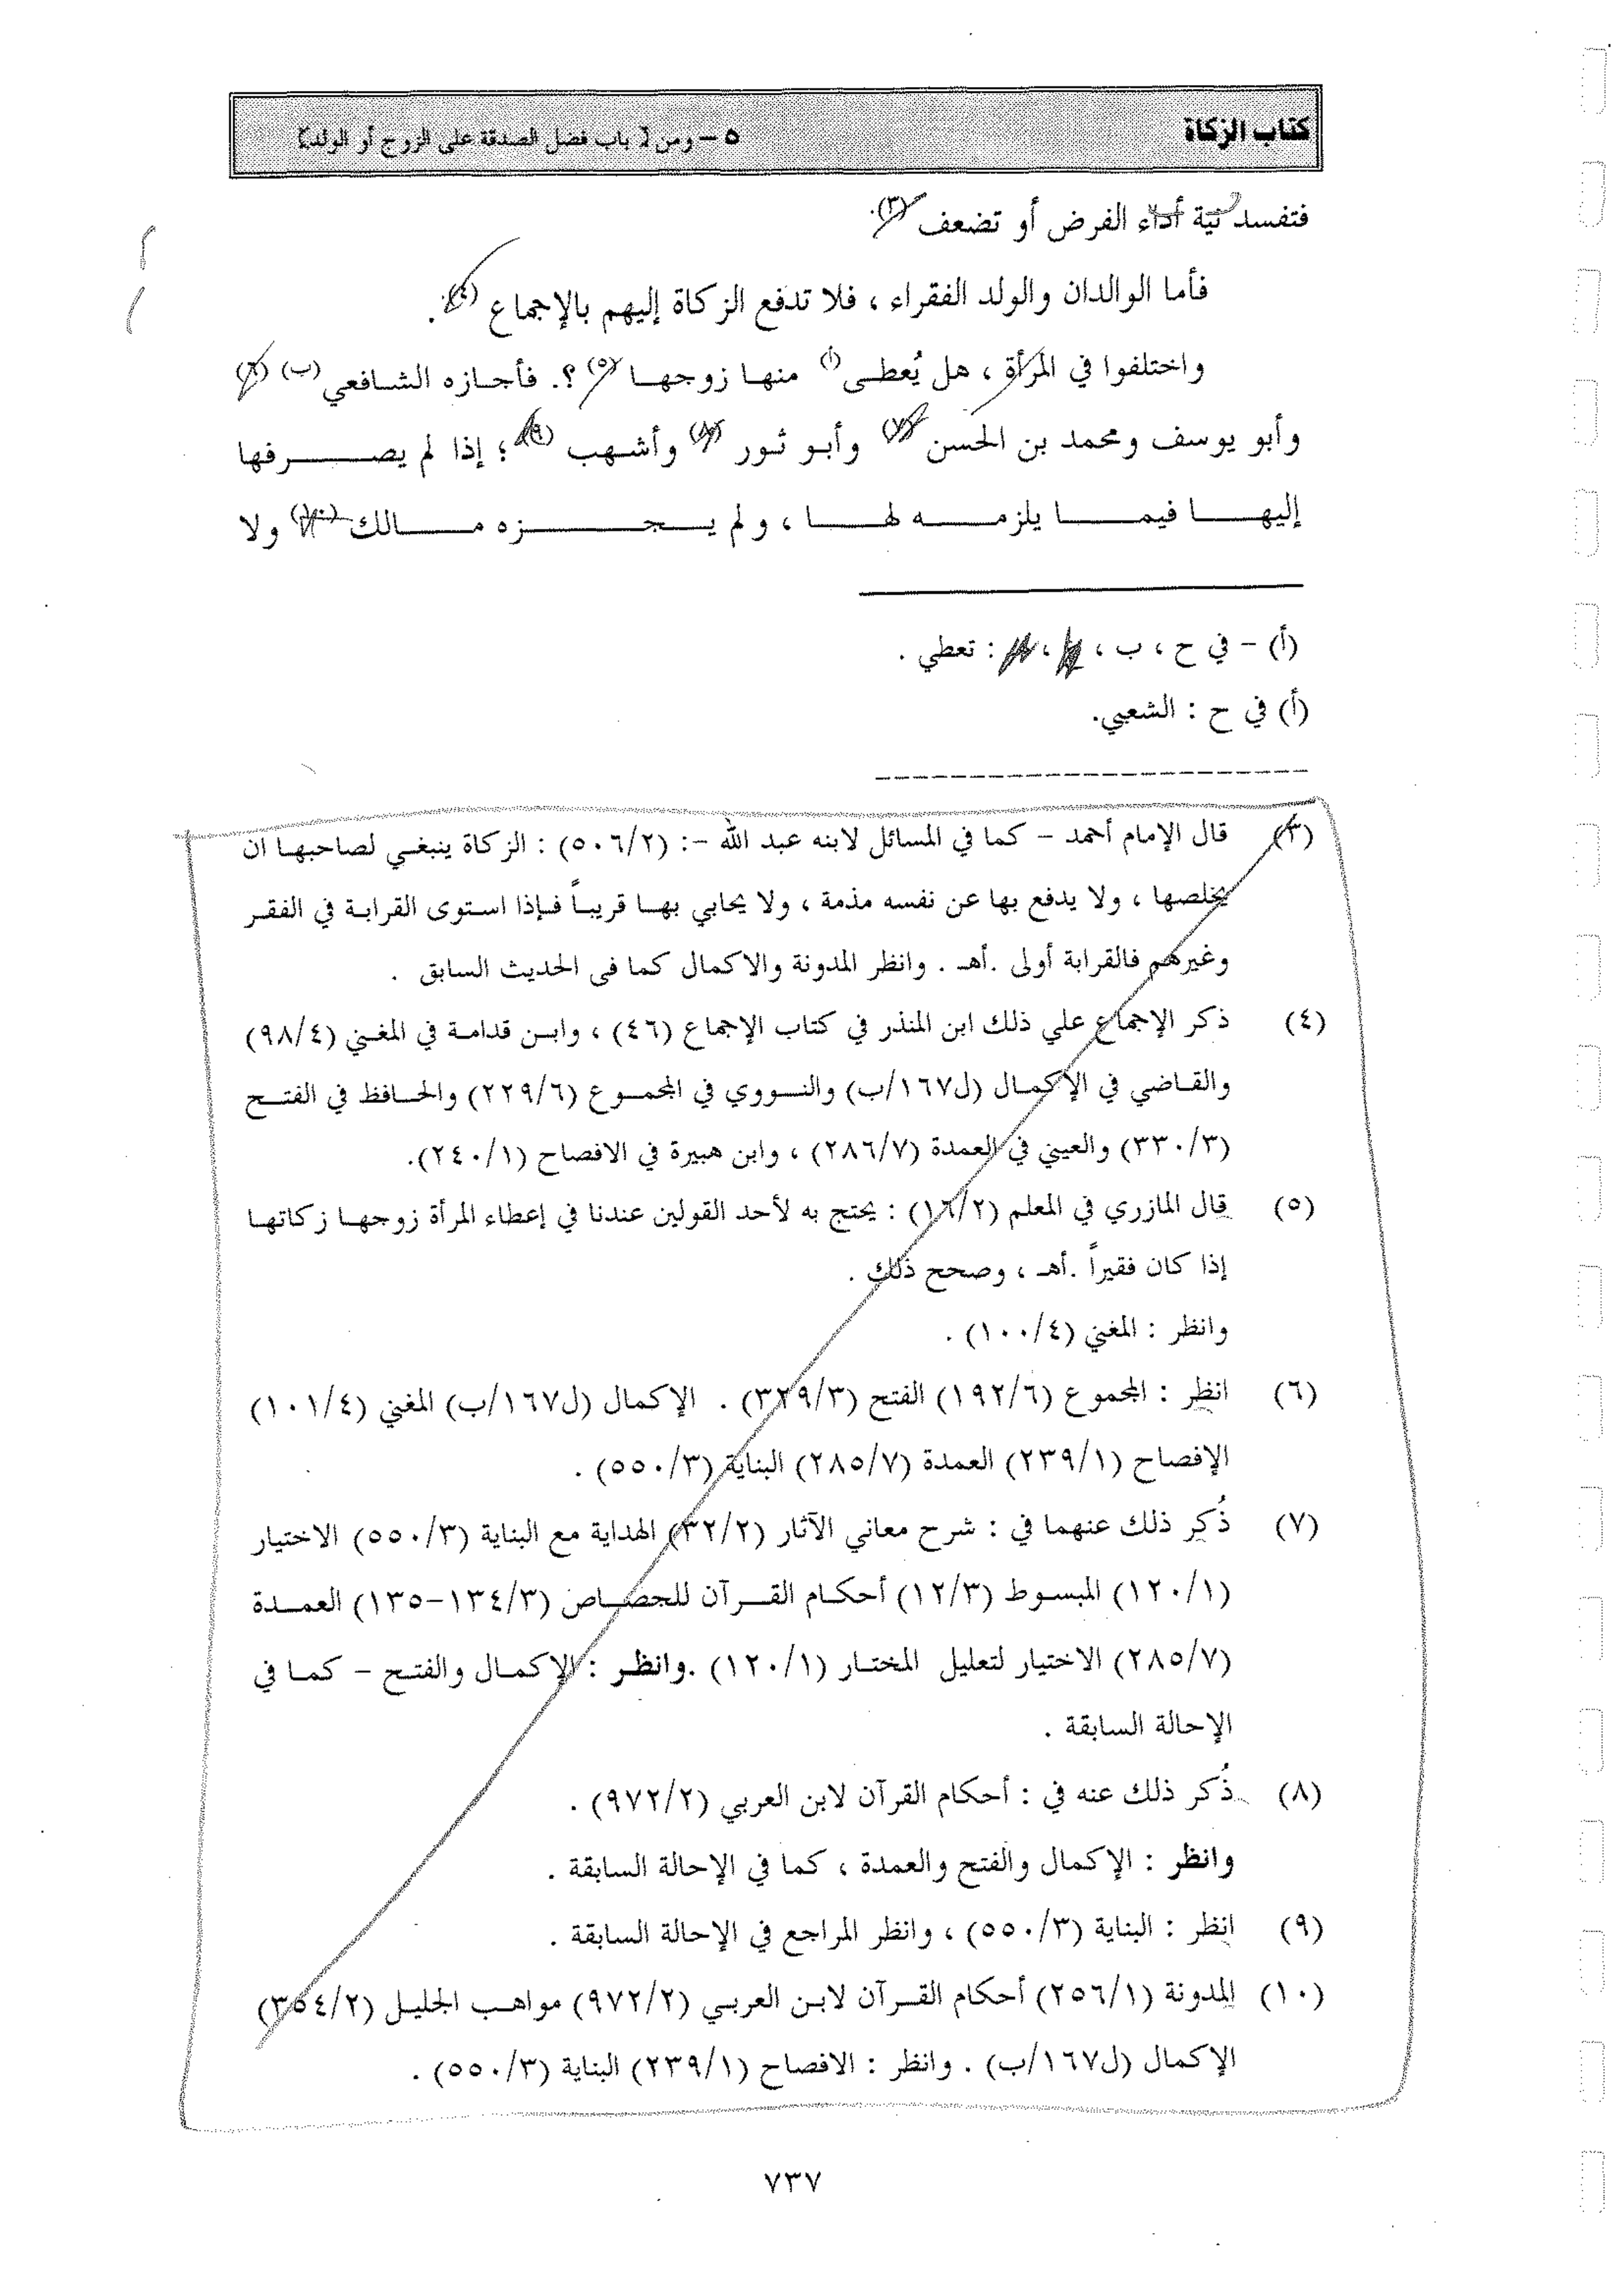 كتاب الزكاة
٥ – ومن [ باب فضل الصدقة على الزوج أو الولد ]
فتفسد نية أداء الفرض أو تضعف (٣).
فأما الوالدان والولد الفقراء ، فلا تدفع الزكاة إليهم بالإجماع (٤).
واختلفوا في المرأة ، هل يُعطى(أ) منها زوجها (٥) ؟. فأجازه الشافعي(ب) (٦)
وأبو يوسف ومحمد بن الحسن (٧) وأبو ثور (٨) وأشهب (٩) ؛ إذا لم يصرفها
إليها فيما يلزمه لها ، ولم يجزه مالك (١٠) ولا
(أ) – في ح ، ب ، ، : تعطي .
(أ) في ح : الشعبي.
(٣) قال الإمام أحمد – كما في المسائل لابنه عبد الله –: (٥٠٦/٢) : الزكاة ينبغي لصاحبها ان
يخلصها ، ولا يدفع بها عن نفسه مذمة ، ولا يحابي بها قريباً فإذا استوى القرابة في الفقر
وغيرهم فالقرابة أولى .أهـ . وانظر المدونة والاكمال كما فى الحديث السابق .
(٤) ذكر الإجماع علي ذلك ابن المنذر في كتاب الإجماع (٤٦) ، وابن قدامة في المغني (٩٨/٤)
والقاضي في الإكمال (ل١٦٧/ب) والنووي في المجموع (٢٢٩/٦) والحافظ في الفتح
(٣٣٠/٣) والعيني في العمدة (٢٨٦/٧) ، وابن هبيرة في الافصاح (٢٤٠/١).
(٥) قال المازري في المعلم (١٦/٢) : يحتج به لأحد القولين عندنا في إعطاء المرأة زوجها زكاتها
إذا كان فقيراً .أهـ ، وصحح ذلك .
وانظر : المغني (١٠٠/٤) .
(٦) انظر : المجموع (١٩٢/٦) الفتح (٣٢٩/٣) . الإكمال (ل١٦٧/ب) المغني (١٠١/٤)
الإفصاح (٢٣٩/١) العمدة (٢٨٥/٧) البناية (٥٥٠/٣) .
(٧) ذُكر ذلك عنهما في : شرح معاني الآثار (٣٢/٢) الهداية مع البناية (٥٥٠/٣) الاختيار
(١٢٠/١) المبسوط (١٢/٣) أحكام القرآن للجصاص (١٣٤/٣–١٣٥) العمدة
(٢٨٥/٧) الاختيار لتعليل المختار (١٢٠/١) .وانظر : الإكمال والفتح – كما في
الإحالة السابقة .
(٨) ذُكر ذلك عنه في : أحكام القرآن لابن العربي (٩٧٢/٢) .
وانظر : الإكمال والفتح والعمدة ، كما في الإحالة السابقة .
(٩) انظر : البناية (٥٥٠/٣) ، وانظر المراجع في الإحالة السابقة .
(١٠) المدونة (٢٥٦/١) أحكام القرآن لابن العربي (٩٧٢/٢) مواهب الجليل (٣٥٤/٢)
الإكمال (ل١٦٧/ب) . وانظر : الافصاح (٢٣٩/١) البناية (٥٥٠/٣) .
٧٣٧